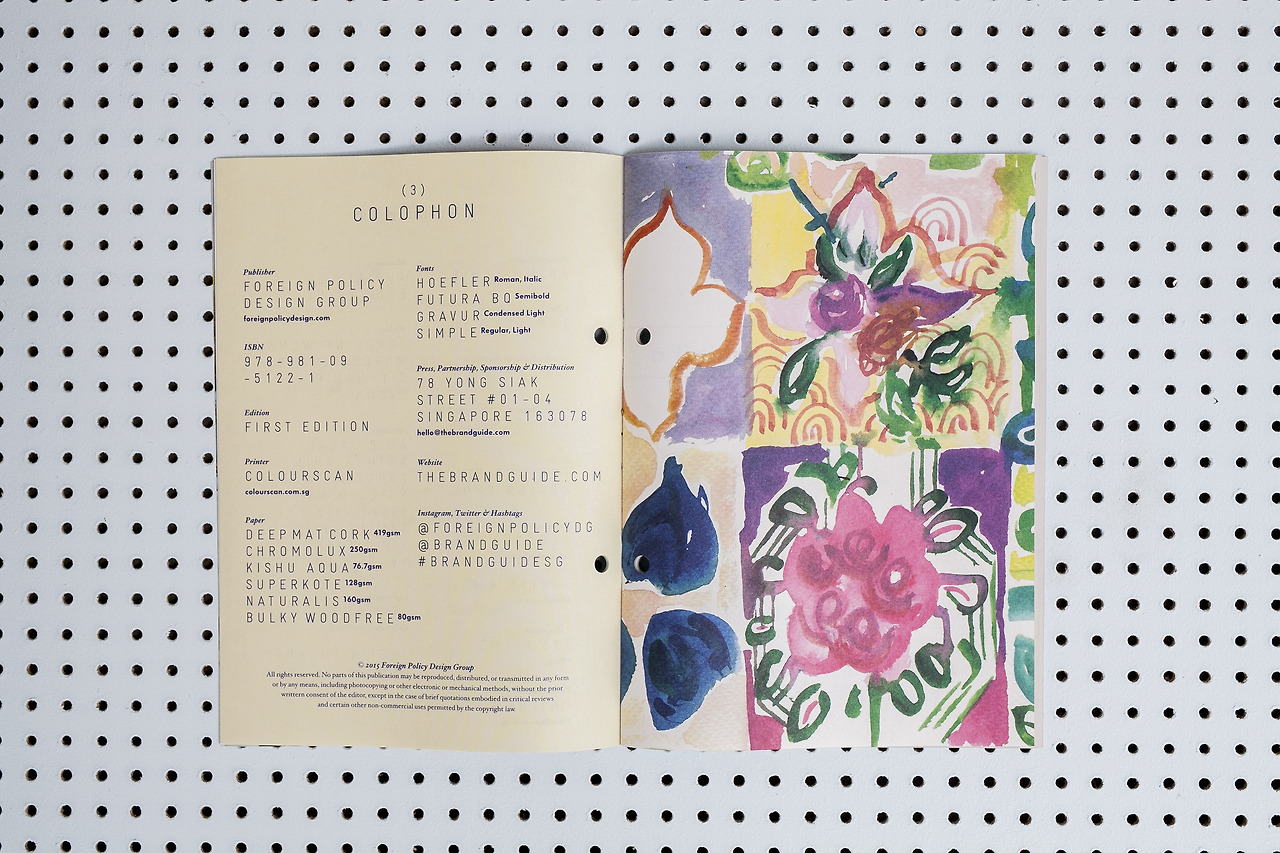 (3)
COLOPHON
Publisher
FOREIGN POLICY
DESIGN GROUP
foreignpolicydesign.com
ISBN
978-981-09
-5122-1
Edition
FIRST EDITION
Printer
COLOURSCAN
colourscan.com.sg
Paper
DEEPMAT CORK 419gsm
CHROMOLUX 250gsm
KISHU AQUA 76.7gsm
SUPERKOTE 128gsm
NATURALIS 160gsm
BULKY WOODFREE 80gsm
Fonts
HOEFLER Roman, Italic
FUTURA BQ Semibold
GRAVUR Condensed Light
SIMPLE Regular, Light
Press, Partnership, Sponsorship & Distribution
78 YONG SIAK
STREET #01-04
SINGAPORE 163078
hello@thebrandguide.com
Website
THEBRANDGUIDE.COM
Instagram, Twitter & Hashtags
@FOREIGNPOLICYDG
@BRANDGUIDE
#BRANDGUIDESG
© 2015 Foreign Policy Design Group
All rights reserved. No parts of this publication may be reproduced, distributed, or transmitted in any form
or by any means, including photocopying or other electronic or mechanical methods, without the prior
writtern consent of the editor, except in the case of brief quotations embodied in critical reviews
and certain other non-commercial uses permitted by the copyright law.